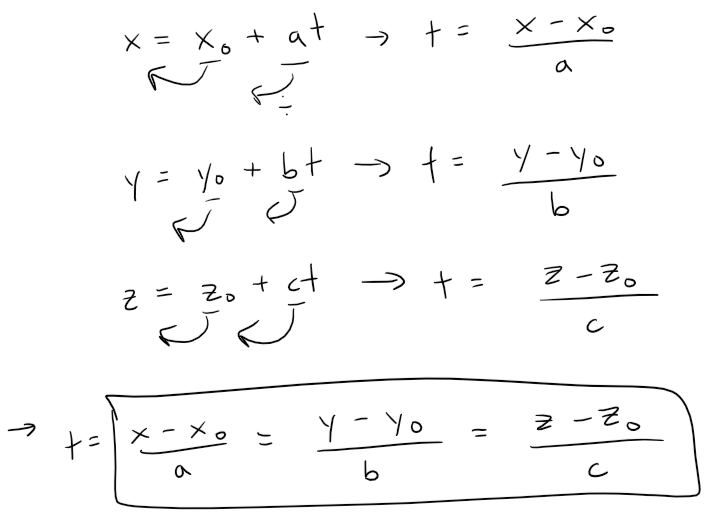 x = x₀ + at → t = (x - x₀)/a
÷
y = y₀ + bt → t = (y - y₀)/b
z = z₀ + ct → t = (z - z₀)/c
→ t = (x - x₀)/a = (y - y₀)/b = (z - z₀)/c